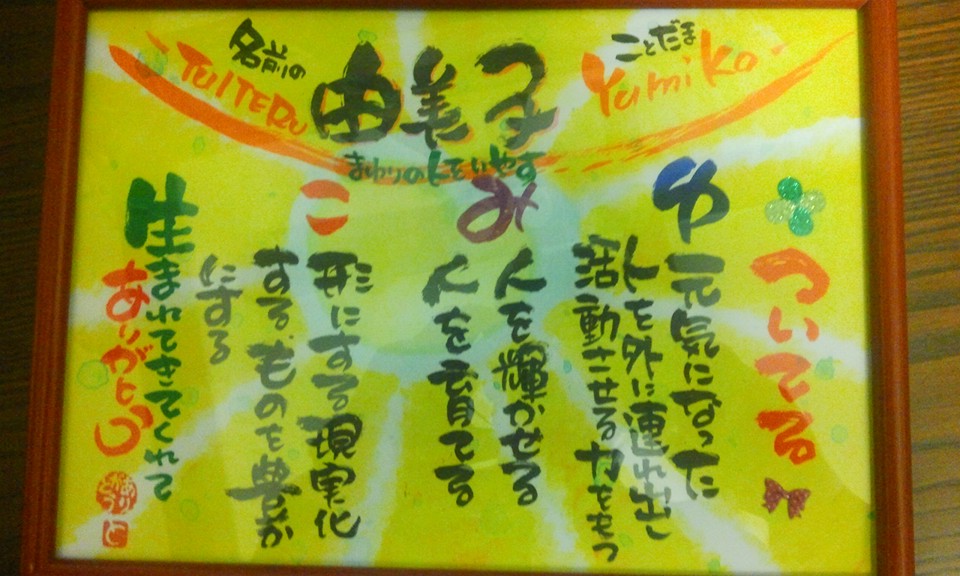 名前の
由美子
ことだま
TUITERU
Yumiko
まわりの人をいやす
ついてる
や
元気になった
人を外に連れ出し
活動させる力をもつ
み
人を輝かせる
人を育てる
こ
形にする現実化
する。ものを豊か
にする
生まれてきてくれて
ありがとう